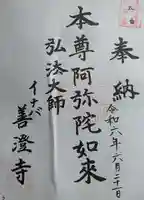 奉納
令和六年六月二十一日
本尊阿弥陀如来
弘法大師
イナバ
善澄寺